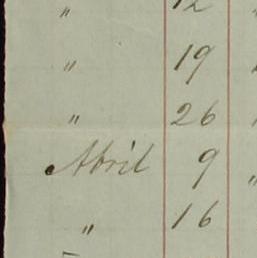 " 12
" 19
" 26
April 9
" 16